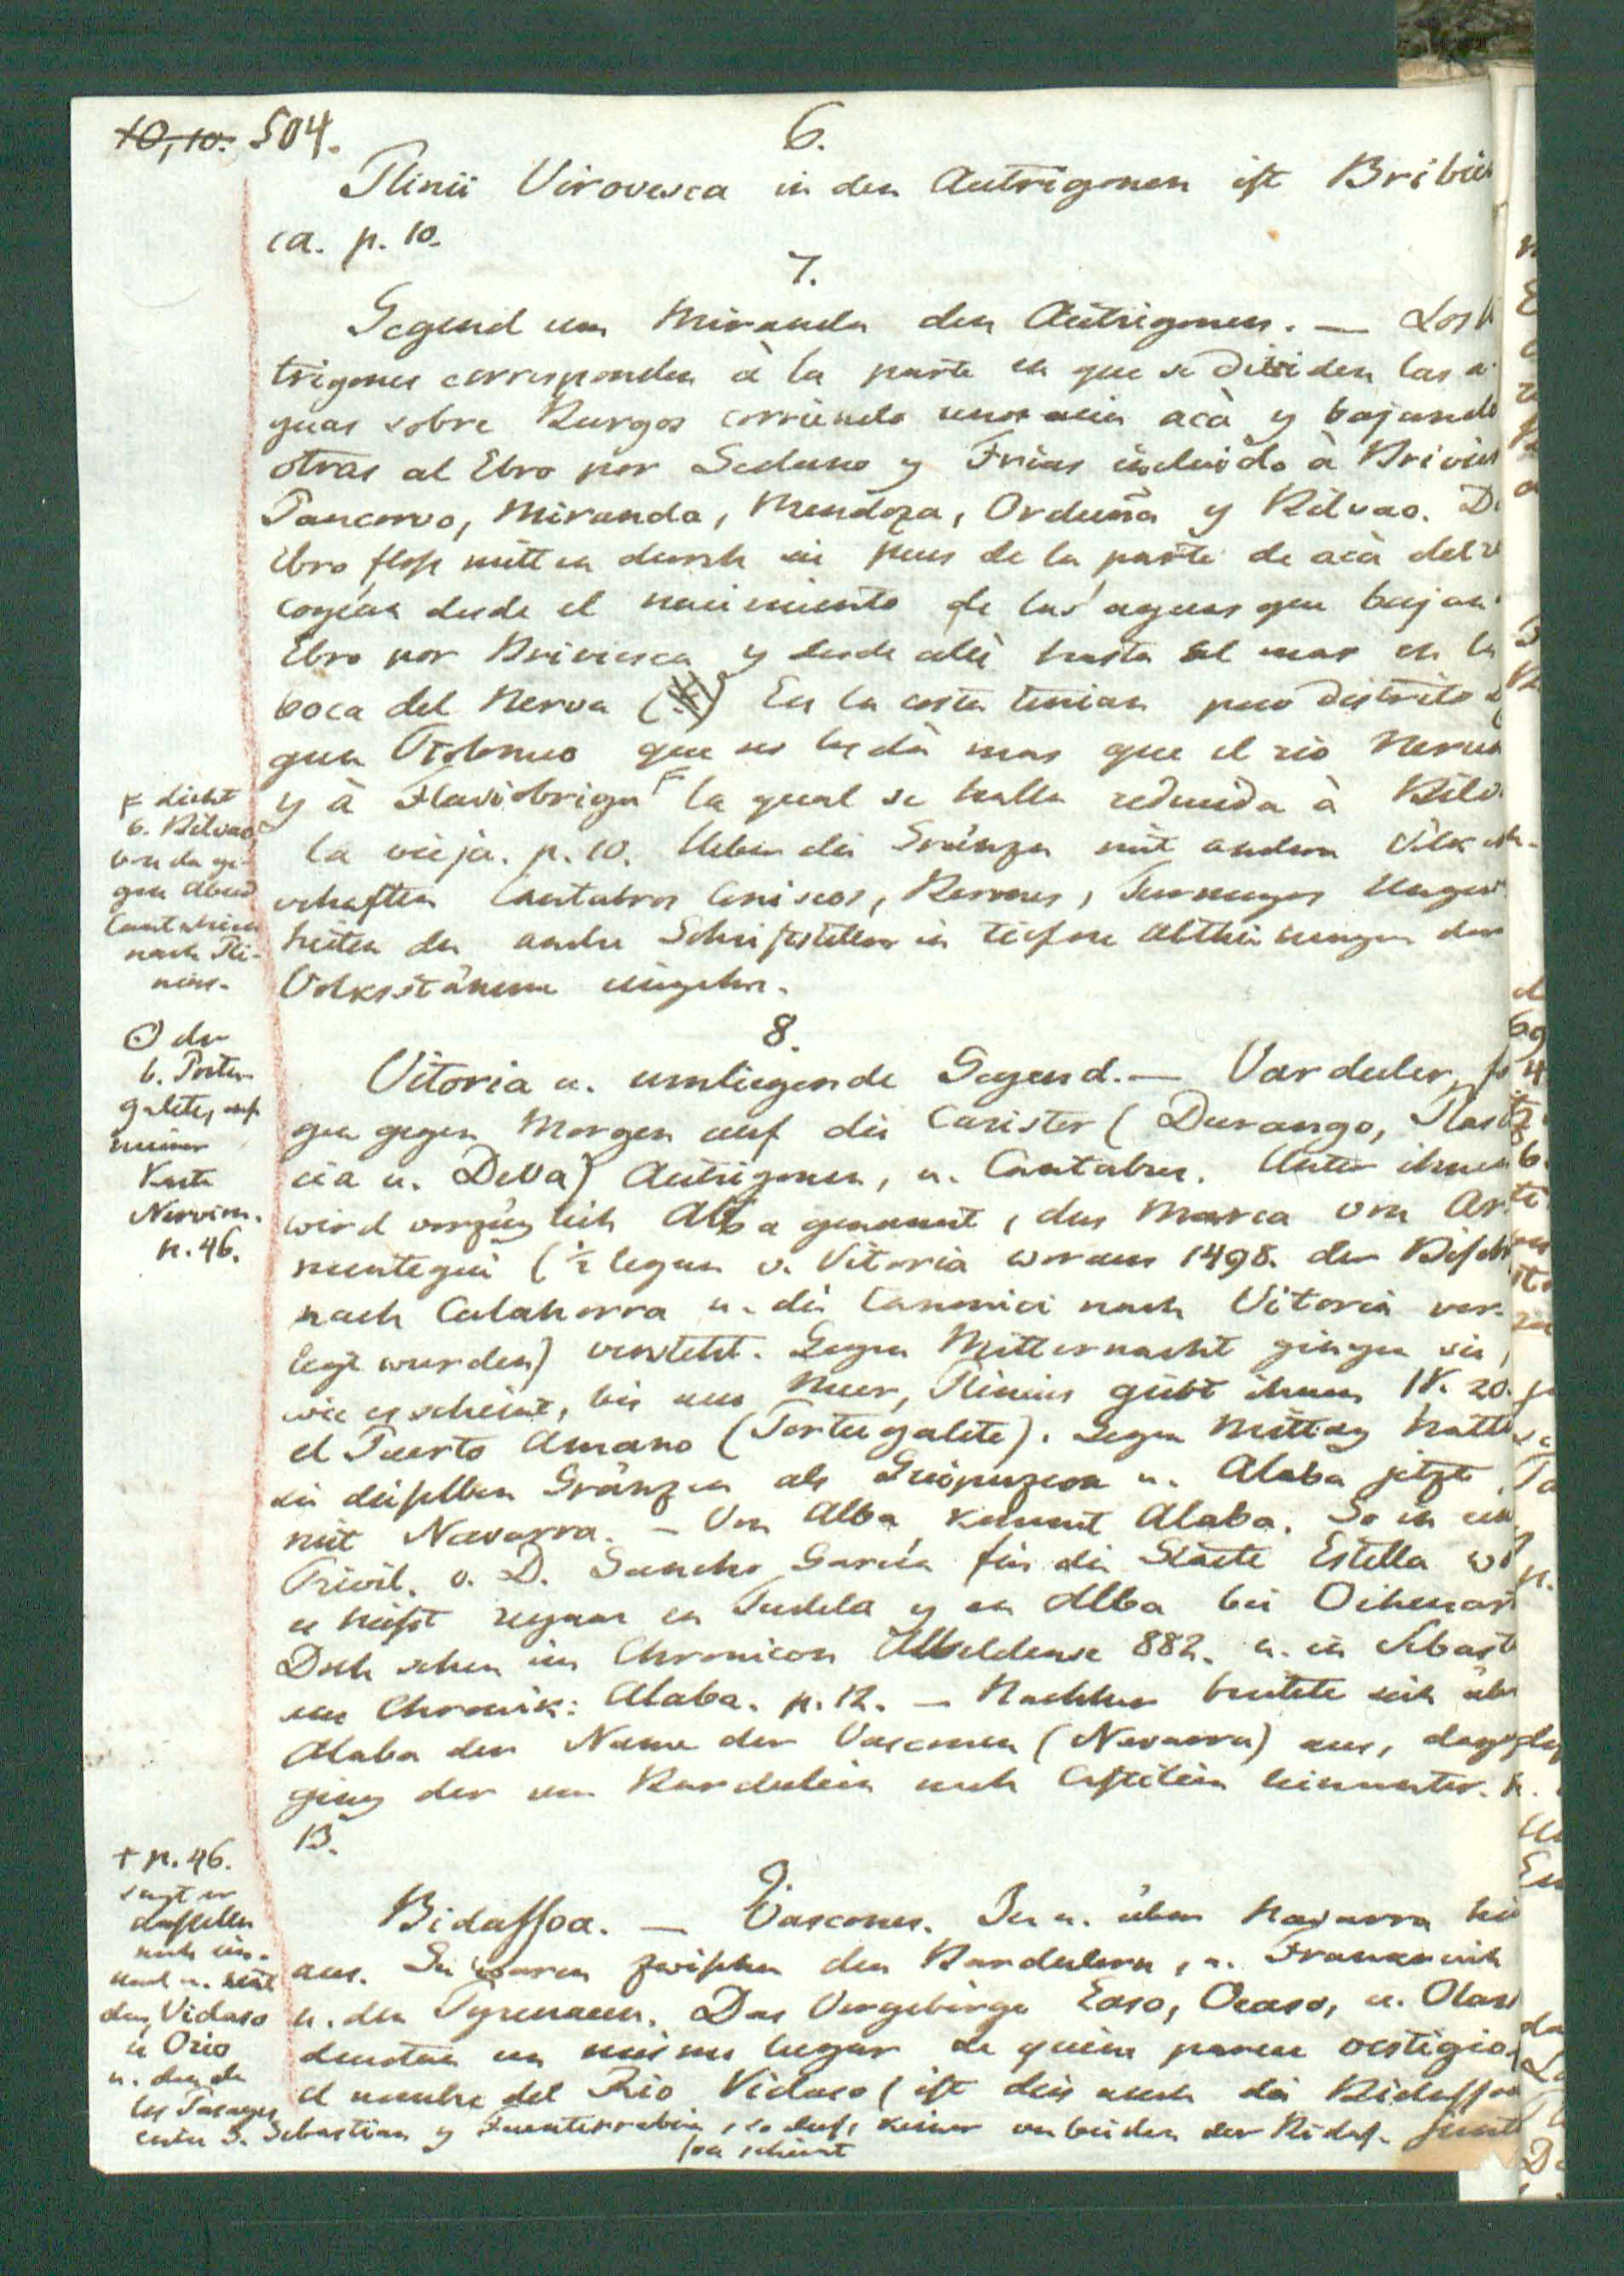 10,10. 504.
6.
Plinii Virovesca in den Autrigonen ist Bribies
ca. p. 10.
7.
Gegend um Miranda den Autrigonen. — Los
trigones corresponden à la parte en que se dividen las a
guas sobre Burgos corriendo unos acia acà y bajando
otras al Ebro por Sedano y Frias incluido à Brivies
Pancorvo, Miranda, Mendoza, Orduña y Bilvao. D
Ebro floss mitten durch sie pues de la parte de acà del
cogian desde el nacimiento de las aguas que bajan
Ebro por Briviesca y desde alli hasta el mar en la
boca del Nerva En la costa tenian poco distrito
gun Tolomeo que no les dà mas que el rio Nerva
y à Flaviobriga la qual se halla reducida à Bilv
la vieja. p. 10. Ueber die Gränzen mit andern Völker-
schaften Cantabros Coniscos, Berones, Turmogos
heiten da andre Schriftsteller in tiefere Abtheilungen der
Volksstämme eingehn.
F dicht
b. Bilvao
von da ge-
gen Abend
Cantabrien
nach Pli-
nius.
8.
Vitoria u. umliegende Gegend. — Varduler,
gen gegen Morgen auf die Carister (Durango, Plas
cia u. Deva) Autrigonen, u. Cantabrer. Unter ihnen
wird vorzüglich Alba genannt, das Marca von Ar
mentegui (½ legua v. Vitoria woraus 1498. der Bischof
nach Calahorra u. die Canonici nach Vitoria ver-
legt wurden) versteht. Gegen Mitternacht gingen sie,
wie es scheint, bis ans Meer, Plinius giebt ihnen IV. 20.
el Puerto Amano (Portugalete). Gegen Mittag hatte
sie dieselben Gränzen als Guipuzcoa u. Alaba jetzt
mit Navarra. — Von Alba kommt Alaba. So in
Privil. v. D. Sancho Garcia für die Städte Estella
es heisst regnar en Tudela y en Alba bei Oihenart
Doch schon im Chronicon Albeldense 882. u. in Sebast
Chronik: Alaba. p. 12. — Nachher breitete sich über
Alaba der Name der Vasconen (Navarra) aus, dag
ging der von Bardulien nach Castilien hinunter.
13.
der
b. Portu-
galete, auf
meiner
Karte
Nervion.
p. 46.
9.
Bidassoa. — Vascones. In u. über Navarra hin
aus. Sie waren zwischen den Bardulern, u. Frankreich
u. den Pyrenaeen. Das Vorgebirge Easo, Oeaso, u. Olars
denotan un mismo lugar de quien parece vestigio
el nombre del Rio Vidaso (ist dies auch die Bidassoa
+ p. 46.
sagt er
dasselbe
noch ein-
mal u. setzt
den Vidaso
u Orio
u. den de
los Pasages
entre S. Sebastian y Fuenterrabia, so dass keiner von beiden der Bidas-
soa scheint